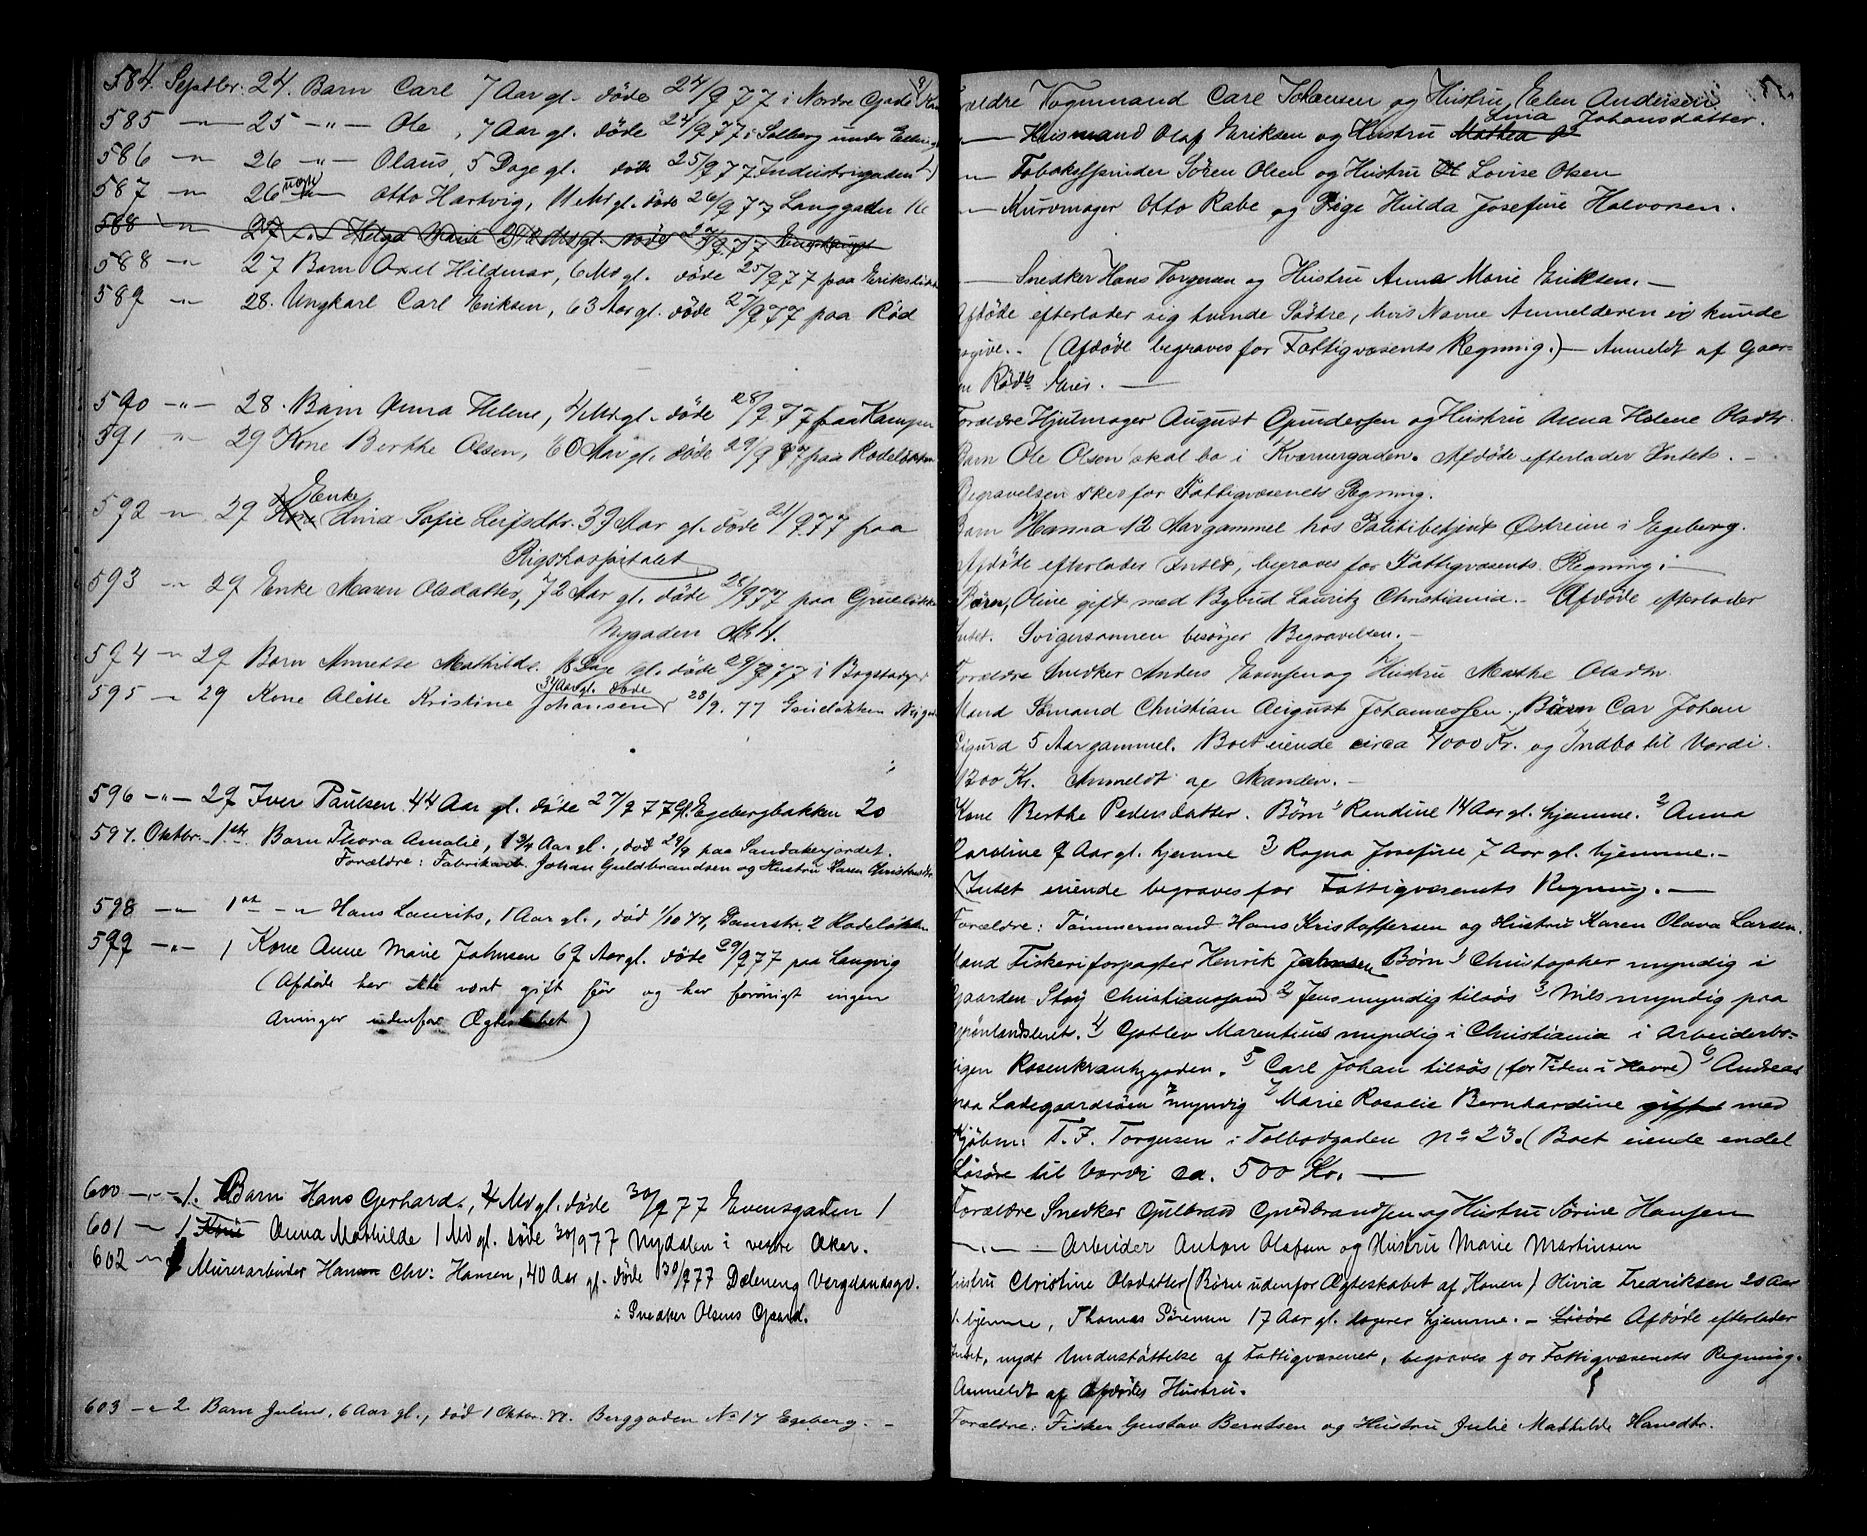 584 Septbr. 24. Barn Carl 7 Aar gl. døde 24/9 77 i Nordre Gade
585 -"- 25 -"- Ole, 7 Aar gl. døde 24/9 77 i Solberg under
586 -"- 26 -"- Olaus, 5 Dage gl. døde 25/9 77 Industrigaden
587 -"- 26 Otto Hartvig, 11 Md gl. døde 26/9 77 Langgaden 16
588 -"- 27 -"- Helga Marie Md gl. døde 27/9 77
588 -"- 27 Barn Axel Hildemar, 6 Md gl. døde 25/9 77 paa
589 -"- 28. Ungkarl Carl Eriksen, 63 Aar gl. døde 27/9 77 paa Rød
590 -"- 28. Barn Anna Helene, 4 Md gl. døde 28/9 77 paa Kampen
591 -"- 29 Kone Berthe Olsen, 60 Aar gl. døde 29/9 77 paa Rodeløkken
Enke
592 -"- 29 Kone Lina Sofie 39 Aar gl. døde 21/9 77 paa
Rigshospitalet
593 -"- 29 Enke Maren Olsdatter, 72 Aar gl. døde 28/9 77 paa Grüneløkken
Nygaden
594 -"- 29 Barn Annette Mathilde Dage gl. døde 29/9 77 i
34 Aar gl. døde
595 -"- 29 Kone Alette Kristine Johansen 28/9. 77
596 -"- 29 Iver Paulsen 44 Aar gl. døde 27/9 77 gl. Egebergbakken 20
597. Oktbr. 1ste. Barn Thora Amalie, 1 3/4 Aar gl., død 29/9 paa Sandakerjordet.
Forældre: Fabrikarb. Johan Guldbrandsen og Hustru Karen
598 -"- 1st -"- Hans Laurits, 1 Aar gl., død 1/10 77, 2 Rodeløkken
599 -"- 1 Kone Anne Marie Jahnsen 69 Aar gl. døde 29/9 77 paa Langvig
(Afdøde har ikke vært gift før og har forøvrigt ingen
Arvinger udenfor Ægteskabet)
600 -"- 1. Barn Hans Gerhard, 4 Md gl. døde 30/9 77 Evensgaden 1
601 -"- 1 Anna Mathilde 1 Md gl. døde 30/9 77 Nydalen i vestre Aker.
602 -"- Murerarbeider Hans Chr: Hansen, 40 Aar gl. døde 30/9 77 Dæleneng Vergelandsgd.
i Snedker Olsens Gaard.
603 -"- 2. Barn Julius, 6 Aar gl., død 1 Oktbr. 77. Berggaden No 17 Egeberg. -
Forældre Vognmand Carl Johansen og Hustru Elen Andersen
Lina Johansdatter.
-"- Husmand Olaf Eriksen og Hustru Mathea
-"- Tobakspinder Søren Olsen og Hustru Lovise Olsen
-"- Murermager Otto Rabe og Pige Hulda Josefine Halvorsen.
-"- Snedker Hans Torgersen og Hustru Anna Marie Eriksen.
Afdøde efterlader sig tvende Søstre, hvis Navne Anmelderen ei kunde
opgive. - (Afdøde begraves for Fattigvæsents Regning.) - Anmeldt af Gaar-
den Røds Eier.
Forældre Hjulmager August Gundersen og Hustru Anna Helene Olsdtr.
Barn Ole Olsen skal bo i Kværnergaden. Afdøde efterlader Intet. -
Begravelsen skes for Fattigvæsenets Regning.
Barn Hanna 12 Aar gammel hos Politibetjent Østreim i Egeberg.
Afdøde efterlader Intet, begraves for Fattigvæsents Regning.
Børn, Oline gift med Bybud Lauritz Christiania. - Afdøde efterlader
Intet. Svigersønnen besørger Begravelsen.
Forældre Snedker Anders Evensen og Hustru Marthe Olsdtr.
Mand Sømand Christian August Johannessen. Børn Carl Johan
Sigurd 5 Aar gammel. Boet eiende circa 4000 Kr. og Indbo til Værdi
1200 Kr. Anmeldt af Manden. -
Kone Berthe Pedersdatter. Børn 1 Randine 14 Aar gl. hjemme. 2 Anna
Karoline 9 Aar gl. hjemme 3 Ragna Josefine 7 Aar gl. hjemme. -
(Intet eiende begraves for Fattigvæsents Regning. -
Forældre: Tømmermand Hans Kristoffersen og Hustru Karen Olava Larsen.
Mand Fiskeriforpagter Henrik Jahnsen Børn 1 Christopher myndig i
Gaarden Støy Christianssand 2 Jens myndig tilsøs 3 Nils myndig paa
Grønlandsleret. 4 Gotlev Marentius myndig i Christiania i Arbeiderbo-
ligen Rosenkrantzgaden. 5 Carl Johan tilsøs (for Tiden i Havre) 6 Andreas
paa Ladegaardsøen myndig 7 Marie Rosalie Bernhardine gift med
Kjøbm: T. F. Torgersen i Tolbodgaden No 23. (Boet eiende endel
Løsøre til Værdi ca. 500 Kr. -
Forældre Snedker Gulbrand Gudbrandsen og Hustru Sørine Hansen
-"- Arbeider Anton Olafsen og Hustru Marie Martinsen
Hustru Christine Olsdatter (Børn udenfor Ægteskabet af Konen) Olivia Fredriksen 20 Aar
gl. hjemme, Thomas Sørensen 17 Aar gl. logerer hjemme. - Løsøre Afdøde efterlader
Intet, nydt Understøttelse af Fattigvæsenet, begraves for Fattigvæsenets Regning.
Anmeldt af Afdødes Hustru.
Forældre: Fisker Gustav Berntsen og Hustru Julie Mathilde Hansdtr.